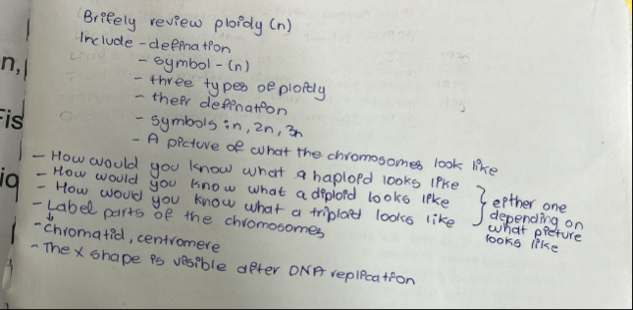 Briefely review ploidy (n)
Include - defination
- symbol - (n)
- three types of ploidy
- their defination
- symbols : n, 2n, 3n
- A picture of what the chromosomes look like
- How would you know what a haploid looks like
- How would you know what a diploid looks like
- How would you know what a triploid looks like
} either one
depending on
what picture
looks like
- Label parts of the chromosomes
↓
- Chromatid, centromere
- The x shape is visible after DNA replication
n,
Fis
iq